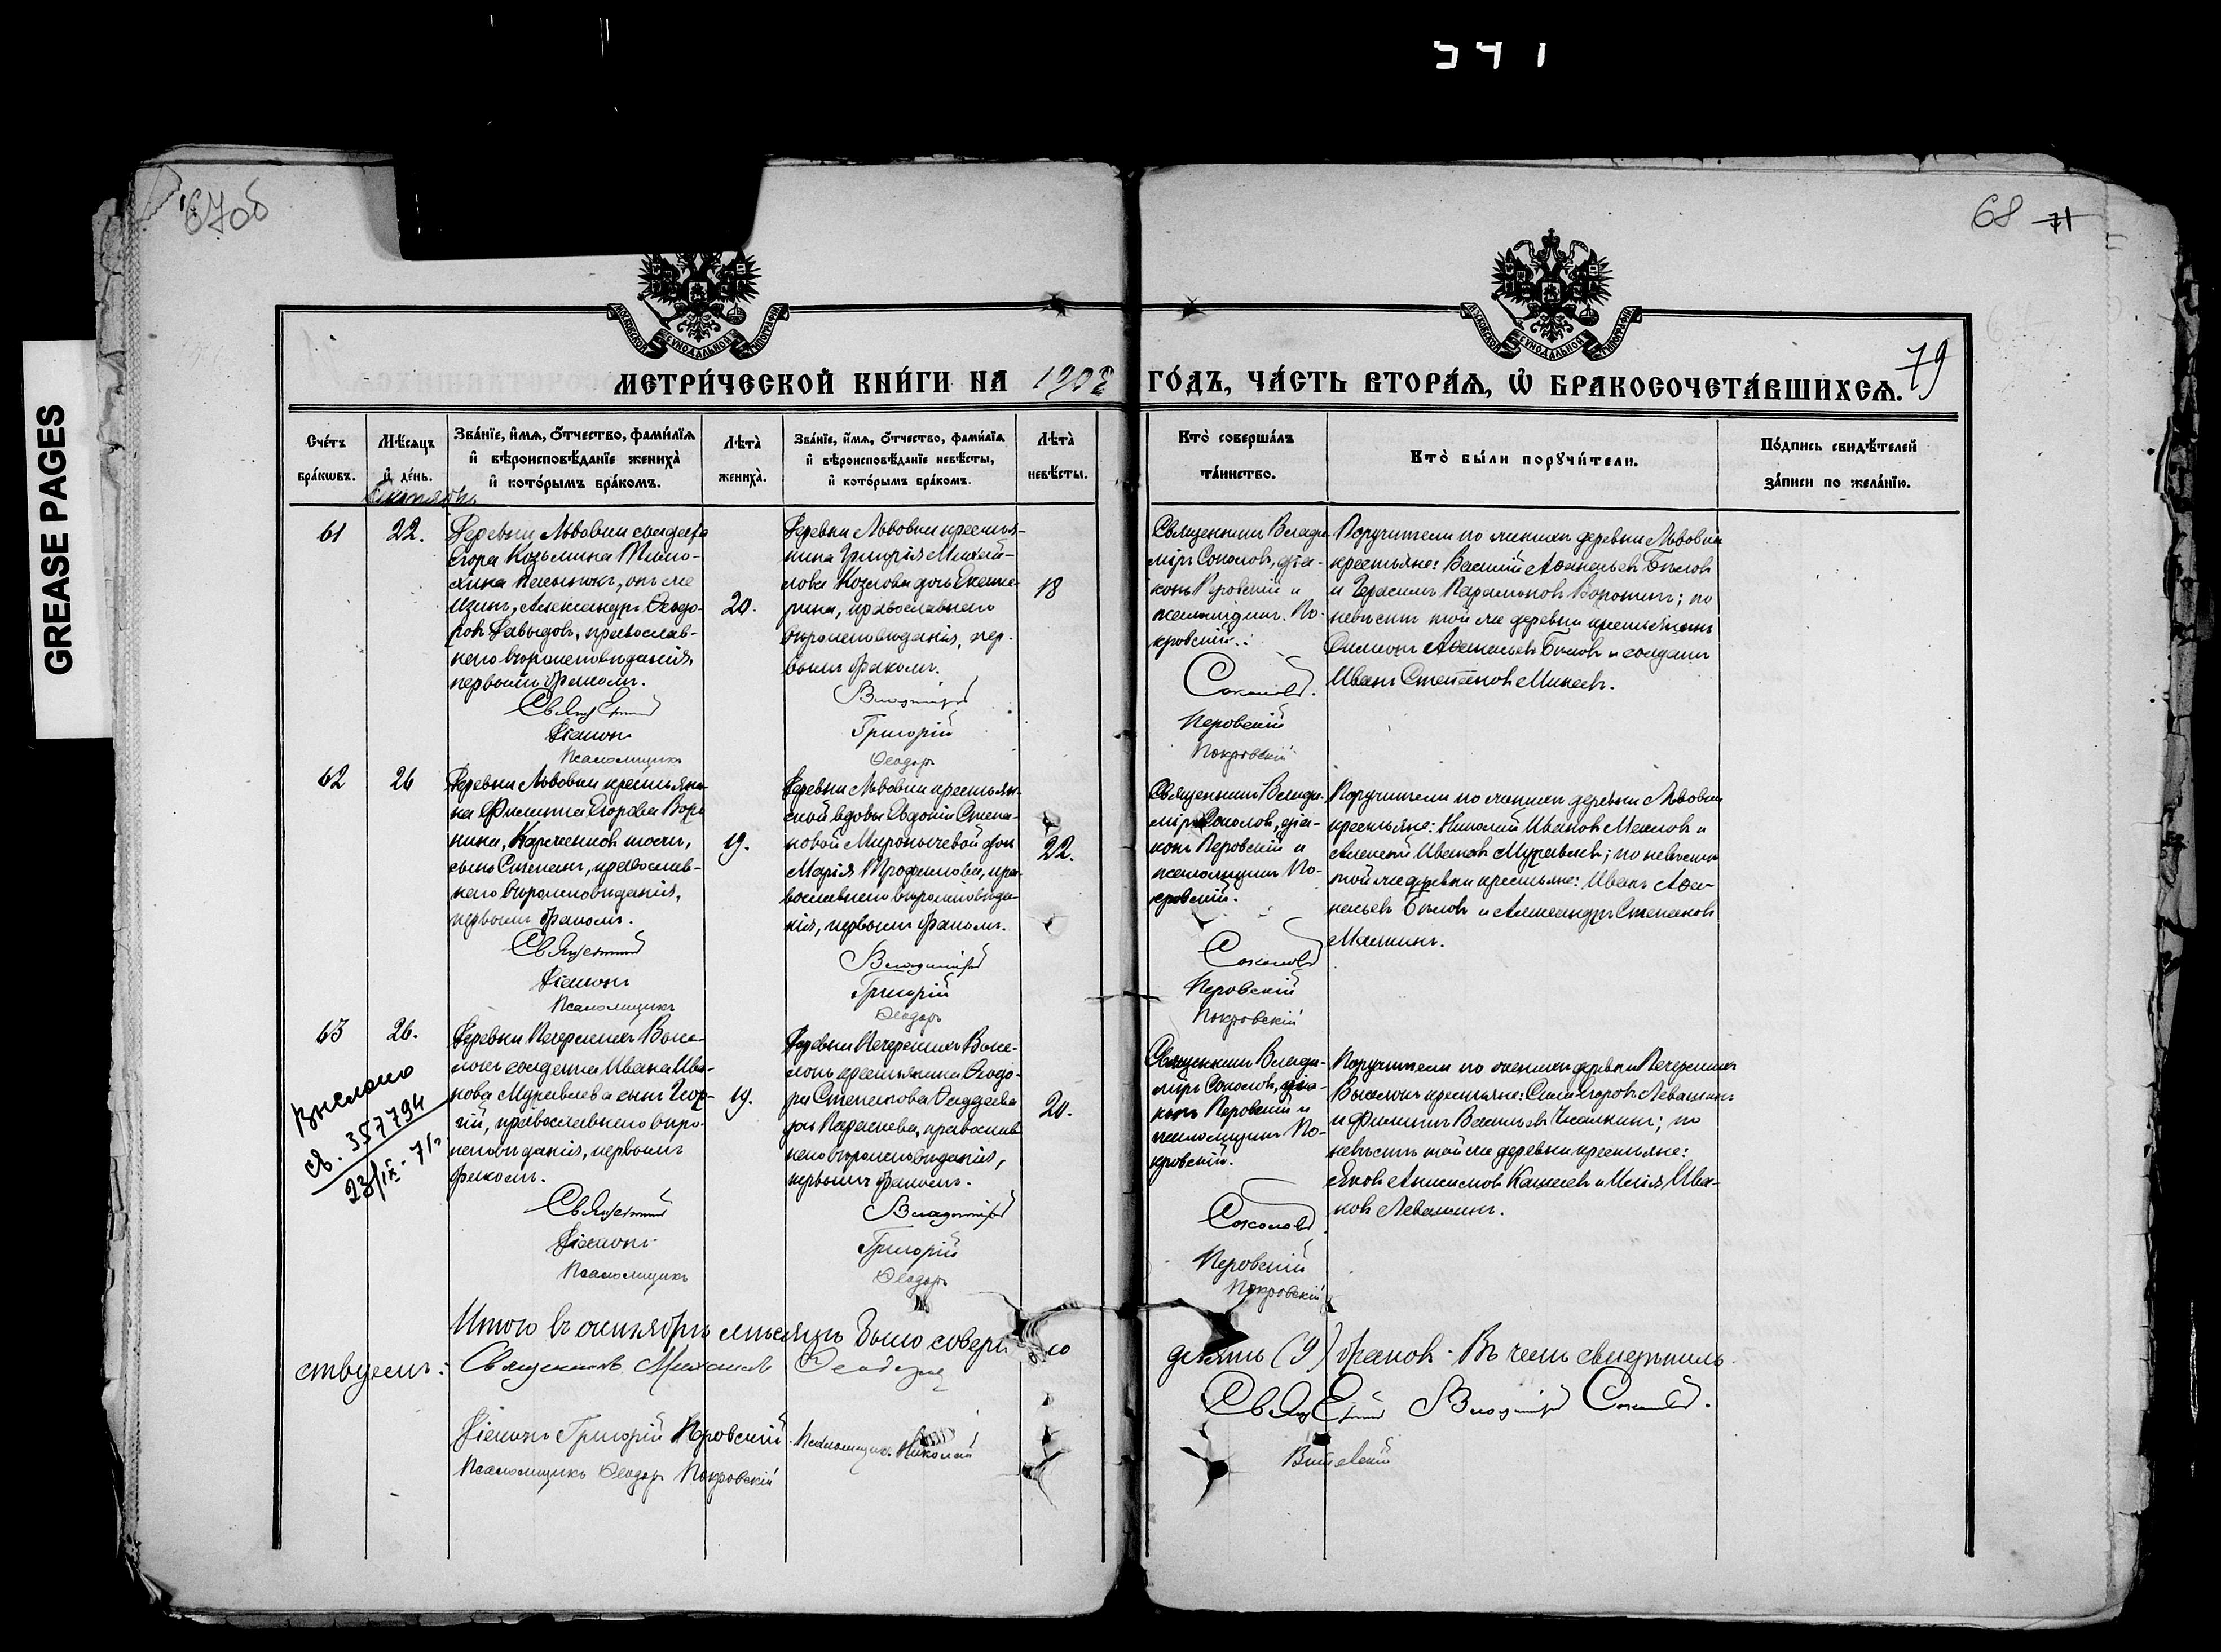 541
GREASE PAGES
67об
68 71
79
МОСКОВСКОЙ СѴНОДАЛЬНОЙ ТИПОГРАФІИ
МОСКОВСКОЙ СѴНОДАЛЬНОЙ ТИПОГРАФІИ
МЕТРИ́ЧЕСКОЙ КНИ́ГИ НА 1902 ГО́ДЪ, ЧА́СТЬ ВТОРА́Ѧ, Ѡ҆ БРАКОСОЧЕТА́ВШИХСѦ.
Сче́тъ
бра́кѡвъ.
Мѣ́сяцъ
и҆ де́нь.
Зва́нїе, и҆́мя, ѻ҆́тчество, фами́лїя
и҆ вѣроисповѣ́данїе жениха̀
и҆ кото́рымъ бра́комъ.
Лѣта̀
жениха̀.
Зва́нїе, и҆́мя, ѻ҆́тчество, фами́лїя
и҆ вѣроисповѣ́данїе невѣ́сты,
и҆ кото́рымъ бра́комъ.
Лѣта̀
невѣ́сты.
Кто̀ соверша́лъ
та́инство.
Кто̀ бы́ли порꙋчи́тели.
По́дпись свидѣ́телей
за́писи по жела́нїю.
Октябрь
61
22.
Деревни Львовки солдата
Егора Козьмина Тимо-
хина пасынок, он же
Александръ Ѳеодо-
ровъ Давыдовъ, православ-
наго вѣроисповѣданія,
первымъ бракомъ.
Священникъ
Діаконъ
Псаломщикъ
20.
Деревни Львовки крестья-
нина Григорія Михай-
лова Козлова дочь Екате-
рина, православнаго
вѣроисповѣданія, пер-
вымъ бракомъ.
Владиміръ
Григорій
Ѳеодоръ
18
Священникъ Влади-
міръ Соколовъ, діа-
конъ Перовскій и
псаломщикъ По-
кровскій.
Соколовъ.
Перовскій
Покровскій
Поручители по женихѣ деревни Львовки
крестьяне: Василій Аѳанасьевъ Бѣловъ
и Герасимъ Парамоновъ Воронинъ; по
невѣстѣ той же деревни крестьянинъ
Симеонъ Аѳанасьевъ Бѣловъ и солдатъ
Иванъ Степановъ Минаевъ.
62
26
Деревни Львовки крестьяни-
на Филиппа Егорова Воро-
нина,
сынъ Степанъ, православ-
наго вѣроисповѣданія,
первымъ бракомъ.
Священникъ
Діаконъ
Псаломщикъ
19.
Деревни Львовки крестьян-
ской вдовы Евдокіи Степа-
новой Миронычевой дочь
Марія Трофимова, пра-
вославнаго вѣроисповѣда-
нія, первымъ бракомъ.
Владиміръ
Григорій
Ѳеодоръ
22.
Священникъ Влади-
міръ Соколовъ, діа-
конъ Перовскій и
псаломщикъ По-
кровскій.
Соколовъ
Перовскій
Покровскій
Поручители по женихѣ деревни Львовки
крестьяне: Николай Ивановъ Масловъ и
Алексѣй Ивановъ Муравьевъ; по невѣстѣ
той же деревни крестьяне: Иванъ Аѳа-
насьевъ Бѣловъ и Александръ Степановъ
Малкинъ.
63
26.
выслано
св. 357794
23/IX-71г.
Деревни Печерскихъ Высе-
локъ солдата Ивана Ива-
нова Муравьева сынъ Геор-
гій, православнаго вѣро-
исповѣданія, первымъ
бракомъ.
Священникъ
Діаконъ
Псаломщикъ
19.
Деревни Печерскихъ Высе-
локъ крестьянина Ѳеодо-
ра Степанова Ѳаддеева
дочь Параскева, православ-
наго вѣроисповѣданія,
первымъ бракомъ.
Владиміръ
Григорій
Ѳеодоръ
20.
Священникъ Влади-
міръ Соколовъ, діа-
конъ Перовскій и
псаломщикъ По-
кровскій.
Соколовъ
Перовскій
Покровскій
Поручители по женихѣ деревни Печерскихъ
Выселокъ крестьяне: Сила Егоровъ Левашинъ
и Филиппъ Васильевъ Чкалкинъ; по
невѣстѣ той же деревни крестьяне:
Яковъ Анисимовъ Кашаевъ и Илія Ива-
новъ Левашинъ.
Итого въ октябрѣ мѣсяцѣ было соверше но девять (9) браковъ. Въ чемъ свидѣтель-
ствуемъ: Священникъ Михаилъ
Священникъ Владиміръ Соколовъ.
Діаконъ Григорій Перовскій. Псаломщикъ Николай
Псаломщикъ Ѳеодоръ Покровскій